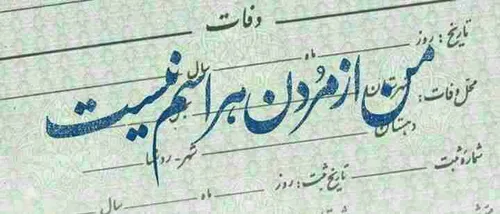 وفات
تاریخ: روز ماه سال
من از مردن هراسم نیست
محل وفات: شهرستان
دهستان شهر - روستا
شمارهٔ ثبت تاریخ ثبت: روز ماه سال